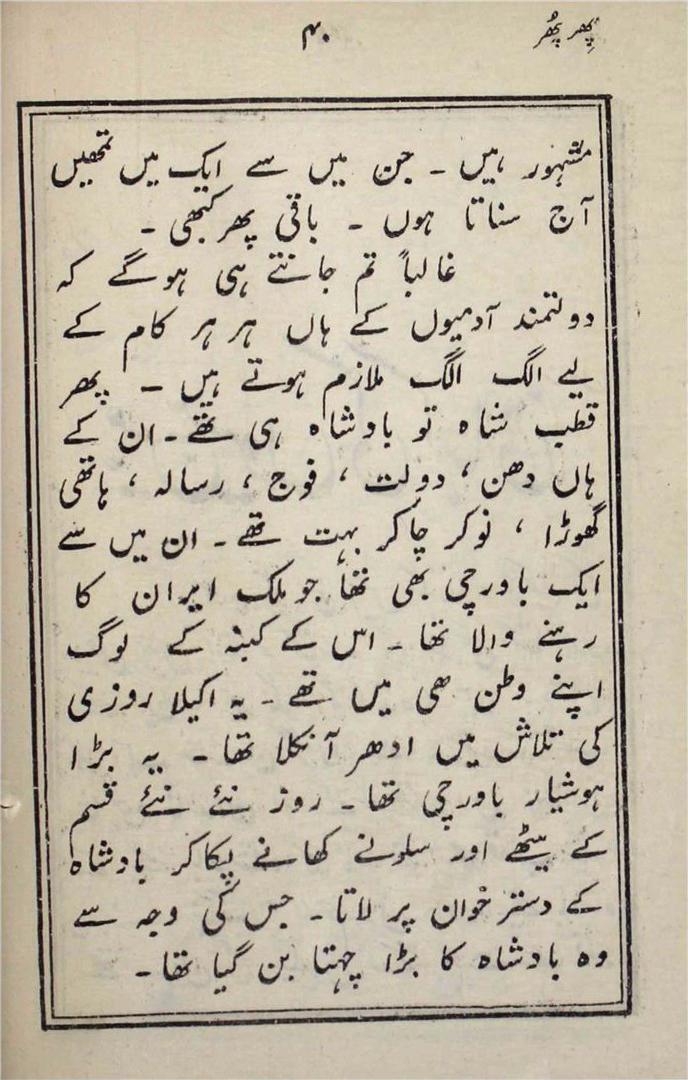 پھر پھُر ۴۰
مشہور ہیں ۔ جن میں سے ایک میں تمھیں
آج سناتا ہوں ۔ باقی پھر کبھی ۔
غالباً تم جانتے ہی ہوگے کہ
دولتمند آدمیوں کے ہاں ہر ہر کام کے
لیے الگ الگ ملازم ہوتے ہیں ۔ پھر
قطب شاہ تو بادشاہ ہی تھے ۔ ان کے
ہاں دھن ، دولت ، فوج ، رسالہ ، ہاتھی
گھوڑا ، نوکر چاکر بہت تھے ۔ ان میں سے
ایک باورچی بھی تھا جو ملک ایران کا
رہنے والا تھا ۔ اس کے کنبہ کے لوگ
اپنے وطن ھی میں تھے ۔ یہ اکیلا روزی
کی تلاش میں ادھر آ نکلا تھا ۔ یہ بڑا
ہوشیار باورچی تھا ۔ روز نئے نئے قسم
کے میٹھے اور سلونے کھانے پکا کر بادشاہ
کے دستر خوان پر لاتا ۔ جس کی وجہ سے
وہ بادشاہ کا بڑا چہیتا بن گیا تھا ۔